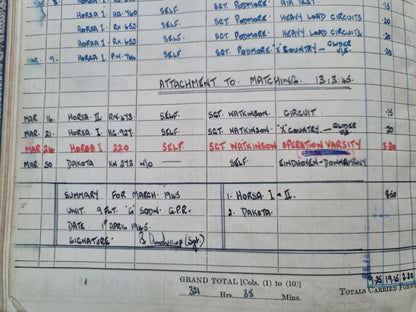 MAR. 8. HORSA I SELF. SGT. PODMORE. AIR TEST ·15
HORSA I HG.760 SELF. SGT. PODMORE. HEAVY LOAD CIRCUITS
HORSA I. RX.652 SELF SGT. PODMORE HEAVY LOAD CIRCUITS
HORSA I. RX.652 SELF. SGT. PODMORE. HEAVY LOAD CIRCUITS
MAR. 9. HORSA I SELF SGT. PODMORE. 'X' COUNTRY — GLIDER ·20
ATTACHMENT TO MATCHING. 13:3:45.
MAR 16. HORSA II RN.673. SELF. SGT. WATKINSON. CIRCUIT ·15
MAR. 21. HORSA I. HG.927. SELF. SGT. WATKINSON. 'X' COUNTRY. — GLIDER ·20
MAR 24 HORSA I 220 SELF. SGT WATKINSON OPERATION VARSITY
MAR 30 DAKOTA KN 273 W/O SELF. EINDHOVEN - DOWN AMPNEY
SUMMARY FOR MARCH 1945 1. HORSA I - II.
UNIT. 9 FLT. 'G' SQDN. G.P.R. 2. DAKOTA.
DATE 1ST APRIL 1945.
SIGNATURE:
GRAND TOTAL [Cols. (1) to (10)]
Hrs. Mins.
TOTALS CARRIED